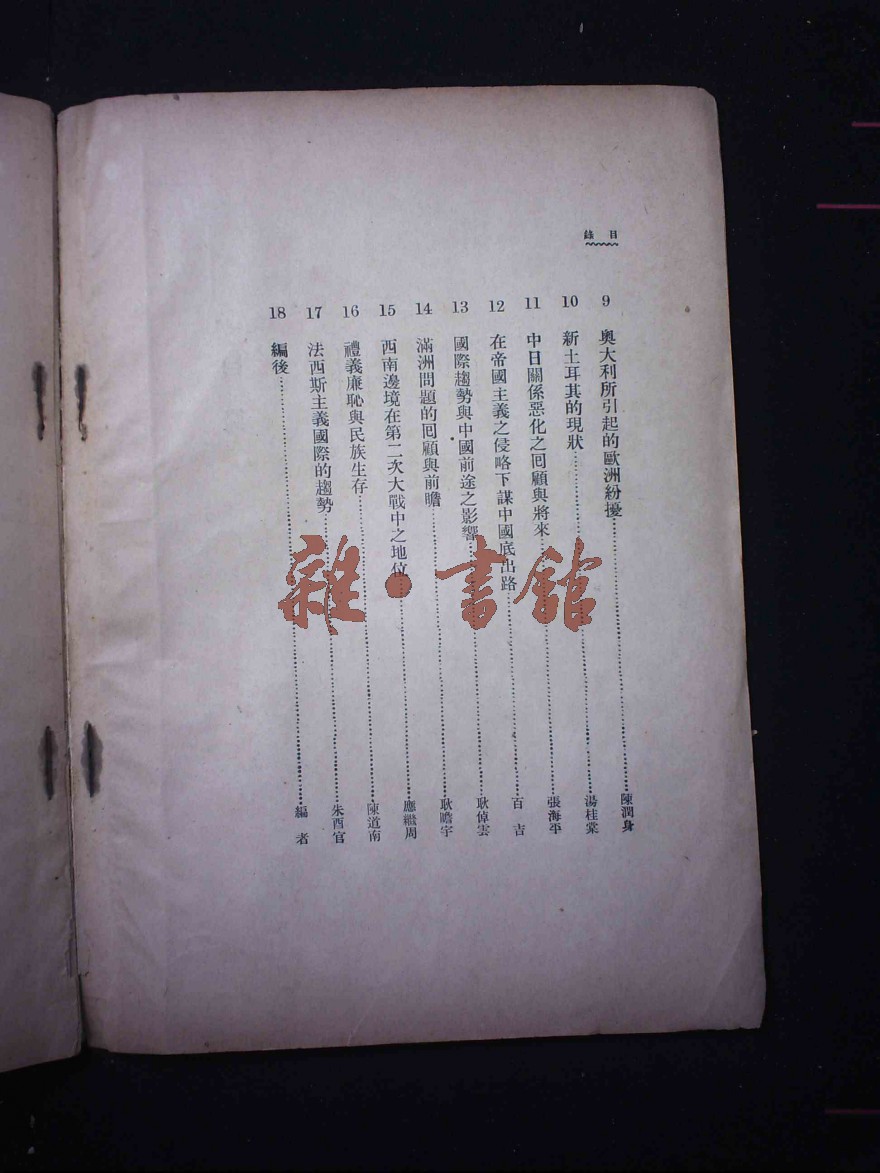 目錄
9 奧大利所引起的歐洲紛擾……陳潤身
10 新土耳其的現狀……湯桂棠
11 中日關係惡化之囘顧與將來……張海平
12 在帝國主義之侵略下謀中國底出路……百吉
13 國際趨勢與中國前途之影響……耿倬雲
14 滿洲問題的囘顧與前瞻……耿瞻宇
15 西南邊境在第二次大戰中之地位……應繼周
16 禮義廉恥與民族生存……陳道南
17 法西斯主義國際的趨勢……朱酉官
18 編後……編者
雜·書館